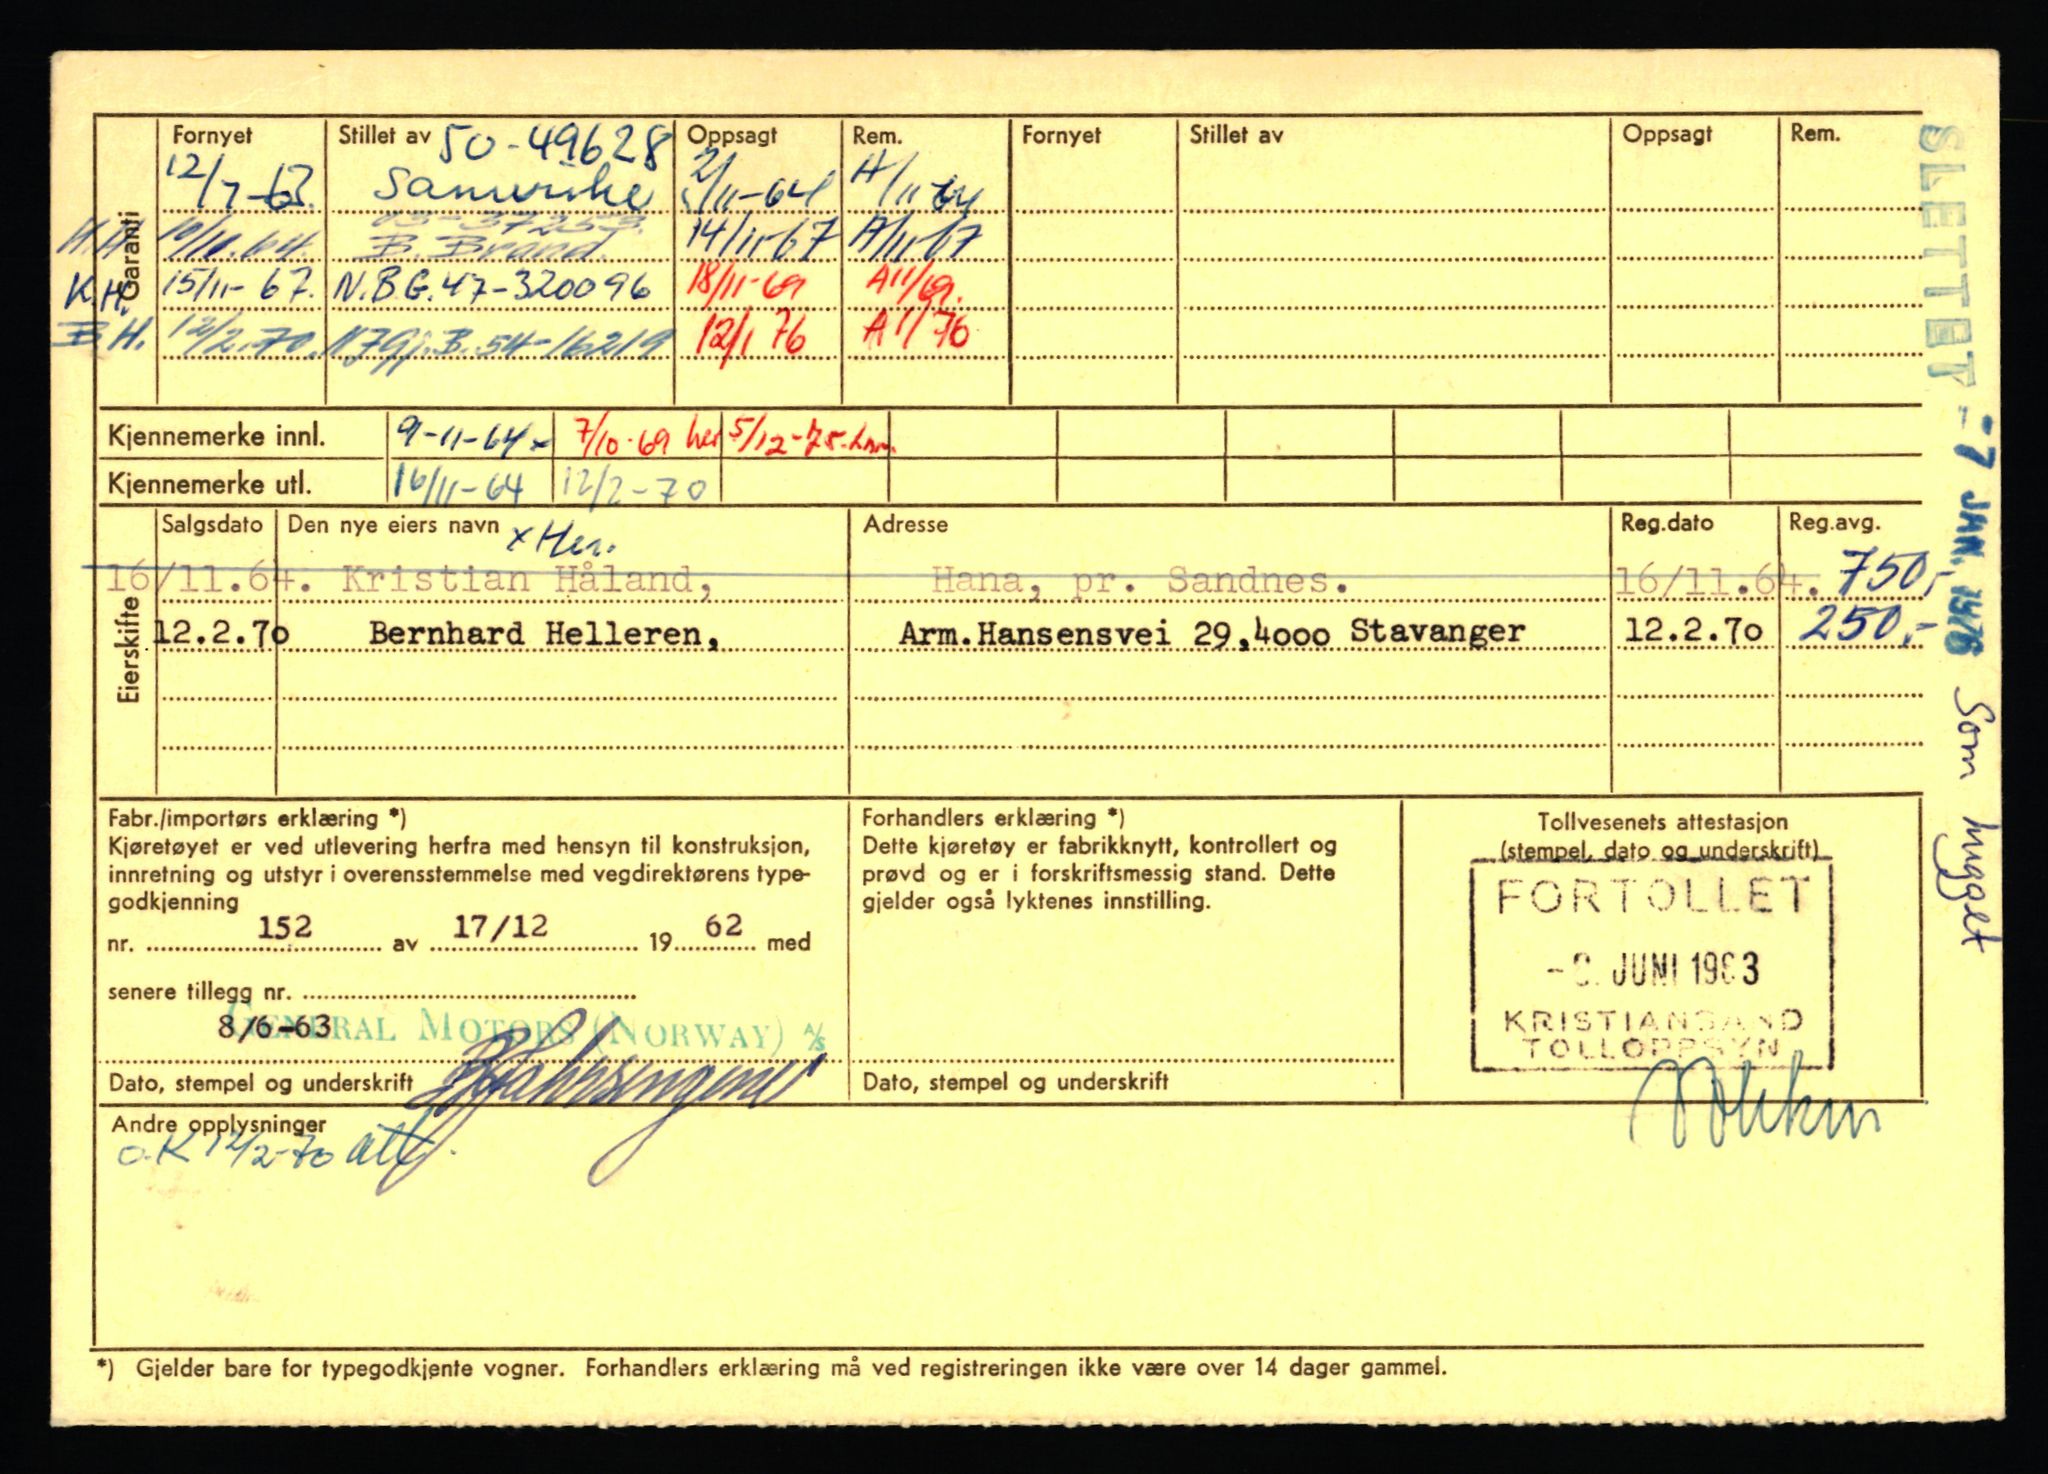 Garanti
Fornyet Stillet av Oppsagt Rem. Fornyet Stillet av Oppsagt Rem.
50-49628
12/7-63. Samvirke 2/11-64 A/11 64
03-37253.
H.H. 10/11.64. B. Brand. 14/11-67 A/11-67
K.H. 15/11-67. N.B.G.47-320096 18/11-69 A11/69.
B.H. 12/2.70. Nygj.B.54-16219 12/1 76 A 1/76
Kjennemerke innl. 9-11-64 x 7/10-69 her 5/12-75-
Kjennemerke utl. 16/11-64 12/2-70
Eierskifte
Salgsdato Den nye eiers navn Adresse Reg.dato Reg.avg.
x Her.
16/11.64. Kristian Håland, Hana, pr. Sandnes. 16/11.64. 750,-
12.2.70 Bernhard Helleren, Arm.Hansensvei 29,4000 Stavanger 12.2.70 250,-
Fabr./importørs erklæring *)
Kjøretøyet er ved utlevering herfra med hensyn til konstruksjon,
innretning og utstyr i overensstemmelse med vegdirektørens type-
godkjenning
nr. 152 av 17/12 19 62 med
senere tillegg nr.
GENERAL MOTORS (NORWAY) A/S
8/6-63
Dato, stempel og underskrift
Forhandlers erklæring *)
Dette kjøretøy er fabrikknytt, kontrollert og
prøvd og er i forskriftsmessig stand. Dette
gjelder også lyktenes innstilling.
Dato, stempel og underskrift
Tollvesenets attestasjon
(stempel, dato og underskrift)
FORTOLLET
JUNI 1963
KRISTIANSAND
TOLLOPPSYN
Andre opplysninger
O.K 12/2-70
*) Gjelder bare for typegodkjente vogner. Forhandlers erklæring må ved registreringen ikke være over 14 dager gammel.
SLETTET -7 JAN. 1976 Som hugget